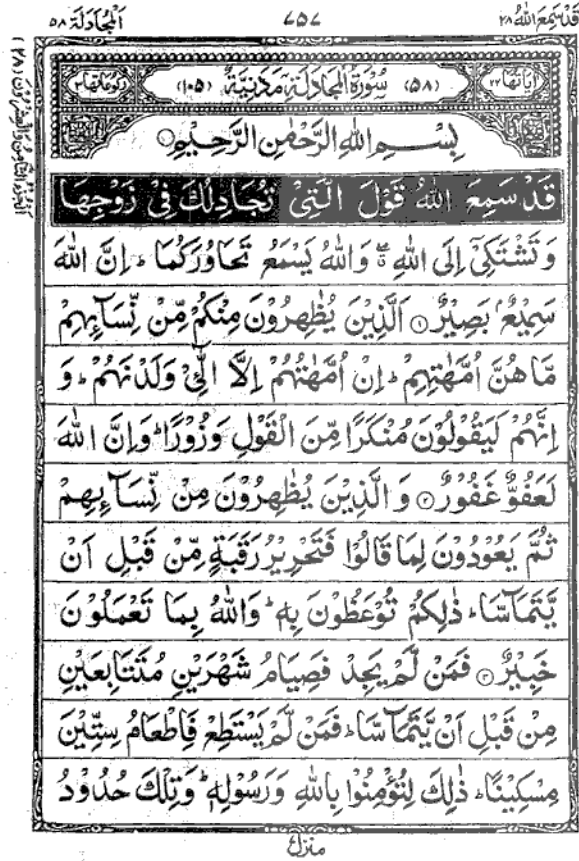 قَدْ سَمِعَ اللّٰهُ ٢٨
٧٥٧
اَلْمُجَادَلَة ٥٨
اٰيَاتُهَا ٢٢
(٥٨) سُوْرَةُ الْمُجَادَلَةِ مَدَنِيَّةٌ (١٠٥)
رُكُوْعَاتُهَا ٣
بِسْمِ اللّٰهِ الرَّحْمٰنِ الرَّحِيْمِ
قَدْ سَمِعَ اللّٰهُ قَوْلَ الَّتِیْ تُجَادِلُكَ فِیْ زَوْجِهَا
وَتَشْتَكِیْۤ اِلَی اللّٰهِ ۖۗ وَاللّٰهُ یَسْمَعُ تَحَاوُرَكُمَا ؕ اِنَّ اللّٰهَ
سَمِیْعٌۢ بَصِیْرٌ ۝١ اَلَّذِیْنَ یُظٰهِرُوْنَ مِنْكُمْ مِّنْ نِّسَآىِٕهِمْ
مَّا هُنَّ اُمَّهٰتِهِمْ ؕ اِنْ اُمَّهٰتُهُمْ اِلَّا الّٰٓـِٔیْ وَلَدْنَهُمْ ؕ وَ
اِنَّهُمْ لَیَقُوْلُوْنَ مُنْكَرًا مِّنَ الْقَوْلِ وَزُوْرًا ؕ وَاِنَّ اللّٰهَ
لَعَفُوٌّ غَفُوْرٌ ۝٢ وَالَّذِیْنَ یُظٰهِرُوْنَ مِنْ نِّسَآىِٕهِمْ
ثُمَّ یَعُوْدُوْنَ لِمَا قَالُوْا فَتَحْرِیْرُ رَقَبَةٍ مِّنْ قَبْلِ اَنْ
یَّتَمَآسَّا ؕ ذٰلِكُمْ تُوْعَظُوْنَ بِهٖ ؕ وَاللّٰهُ بِمَا تَعْمَلُوْنَ
خَبِیْرٌ ۝٣ فَمَنْ لَّمْ یَجِدْ فَصِیَامُ شَهْرَیْنِ مُتَتَابِعَیْنِ
مِنْ قَبْلِ اَنْ یَّتَمَآسَّا ؕ فَمَنْ لَّمْ یَسْتَطِعْ فَاِطْعَامُ سِتِّیْنَ
مِسْكِیْنًا ؕ ذٰلِكَ لِتُؤْمِنُوْا بِاللّٰهِ وَرَسُوْلِهٖ ؕ وَتِلْكَ حُدُوْدُ
منزل